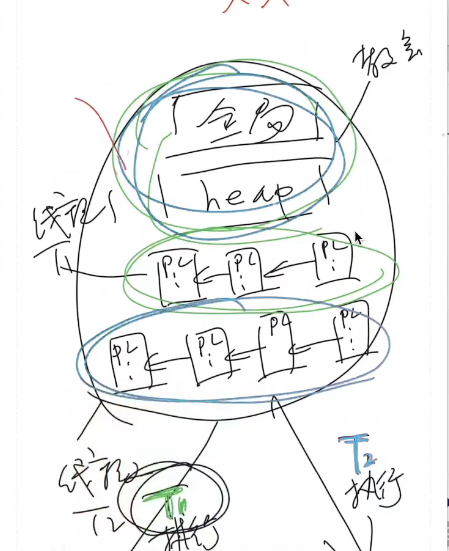 状态
全局
heap
线程1
T1
PC
PC
PC
PC
PC
PC
PC
线程2
T2
T1
执行
T2
执行